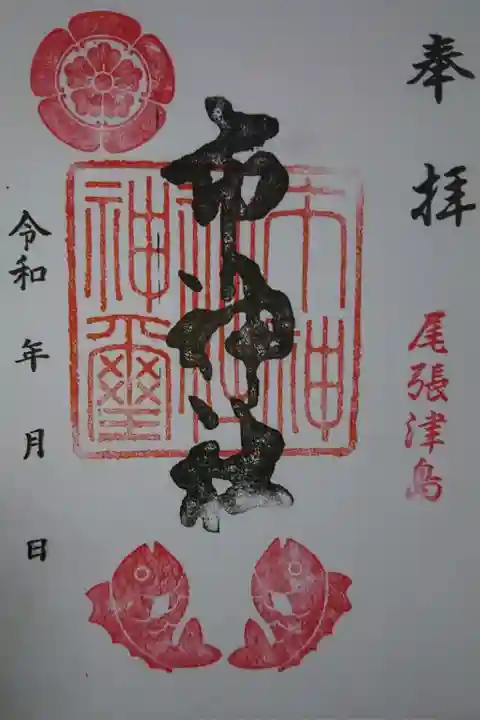 奉拝
尾張津島
市神社
市神
社神
神璽
令和 年 月 日